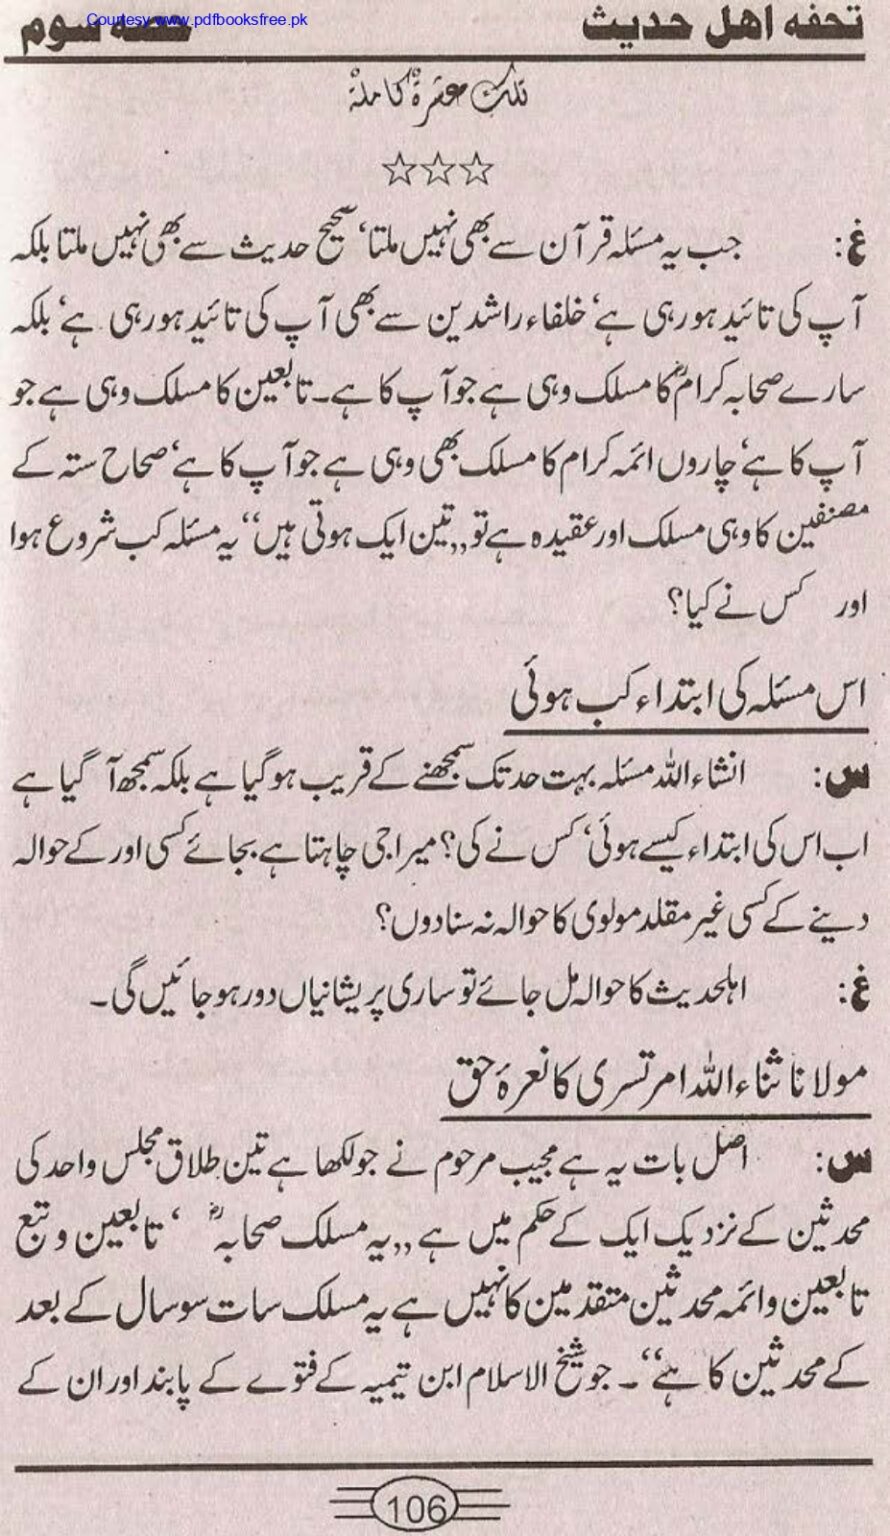 تحفه اهل حدیث
حصه سوم
Courtesy www.pdfbooksfree.pk
تلک عشرة کاملة
☆☆☆
غ: جب یہ مسئلہ قرآن سے بھی نہیں ملتا‘ صحیح حدیث سے بھی نہیں ملتا بلکہ
آپ کی تائید ہو رہی ہے‘ خلفاء راشدین سے بھی آپ کی تائید ہو رہی ہے‘ بلکہ
سارے صحابہ کرامؓ کا مسلک وہی ہے جو آپ کا ہے۔ تابعین کا مسلک وہی ہے جو
آپ کا ہے‘ چاروں ائمہ کرام کا مسلک بھی وہی ہے جو آپ کا ہے‘ صحاح ستہ کے
مصنفین کا وہی مسلک اور عقیدہ ہے تو ,,تین ایک ہوتی ہیں‘‘ یہ مسئلہ کب شروع ہوا
اور کس نے کیا؟
اس مسئلہ کی ابتداء کب ہوئی
س: انشاء اللہ مسئلہ بہت حد تک سمجھنے کے قریب ہو گیا ہے بلکہ سمجھ آ گیا ہے
اب اس کی ابتداء کیسے ہوئی‘ کس نے کی؟ میرا جی چاہتا ہے بجائے کسی اور کے حوالہ
دینے کے کسی غیر مقلد مولوی کا حوالہ نہ سنا دوں؟
غ: اہلحدیث کا حوالہ مل جائے تو ساری پریشانیاں دور ہو جائیں گی۔
مولانا ثناء اللہ امرتسری کا نعرۂ حق
س: اصل بات یہ ہے مجیب مرحوم نے جو لکھا ہے تین طلاق مجلس واحد کی
محدثین کے نزدیک ایک کے حکم میں ہے ,,یہ مسلک صحابہؓ ‘ تابعین و تبع
تابعین و ائمہ محدثین متقدمین کا نہیں ہے یہ مسلک سات سو سال کے بعد
کے محدثین کا ہے‘‘۔ جو شیخ الاسلام ابن تیمیہ کے فتوے کے پابند اور ان کے
106